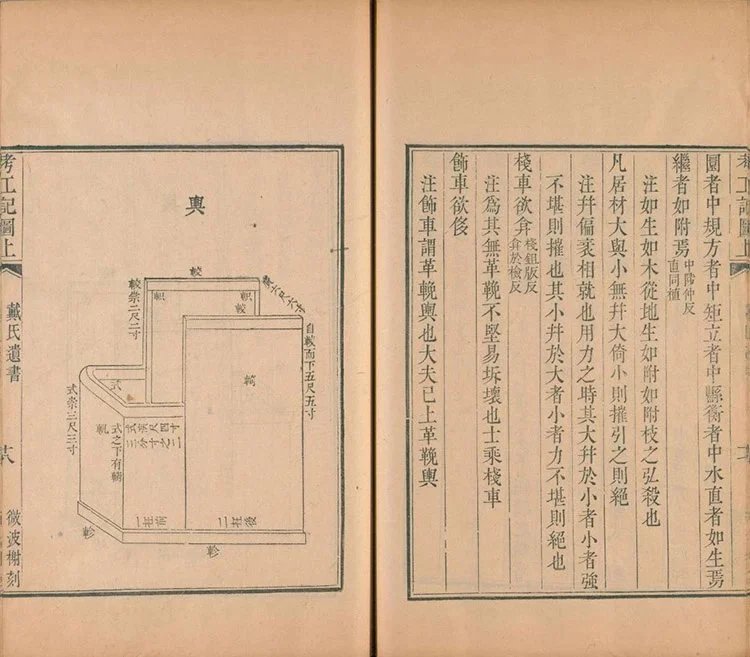 圜者中規方者中矩立者中縣衡者中水直者如生焉
繼者如附焉中陟仲反直同植
注如生如木從地生如附如附枝之弘殺也
凡居材大與小無并大倚小則摧引之則絕
注并偏衺相就也用力之時其大并於小者小者強
不堪則摧也其小并於大者小者力不堪則絕也
棧車欲弇棧鉏版反弇於檢反
注為其無革鞔不堅易坼壞也士乘棧車
飾車欲侈
注飾車謂革鞔輿也大夫已上革鞔輿
輿
較
軹
軹
較
崇六尺六寸
自較而下五尺五寸
較崇二尺二寸
輢
式
式崇三尺三寸
軓
式之下有轛
二在後
一在前
軫
軫
考工記圖上
戴氏遺書
微波榭刻